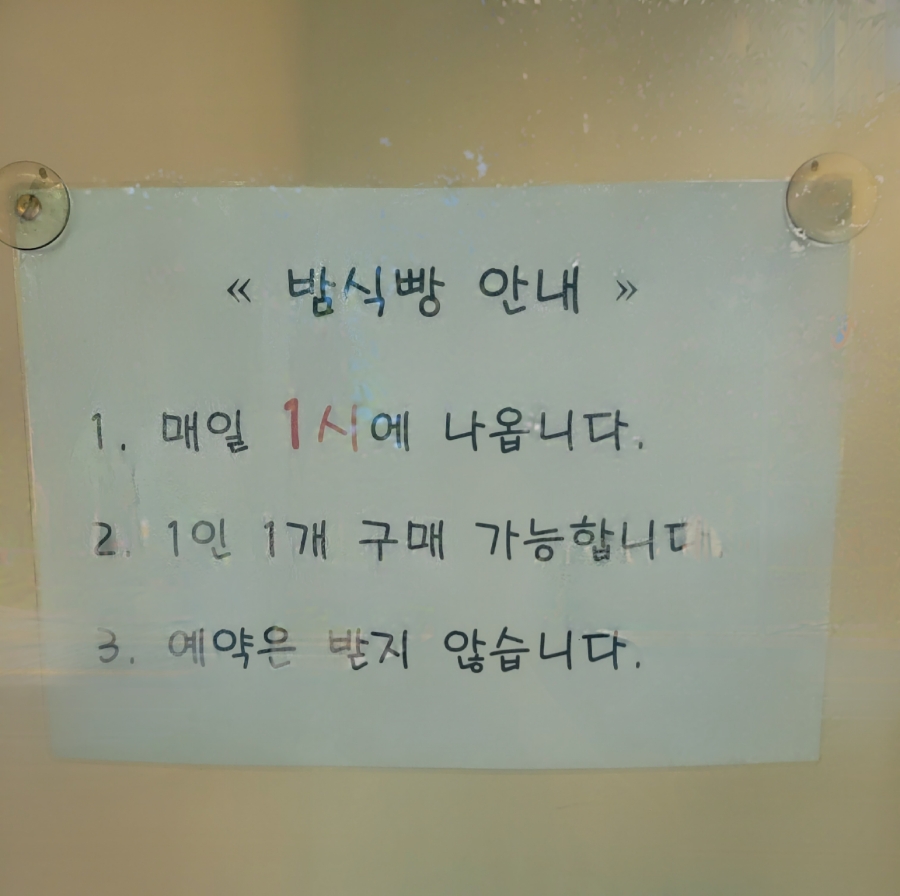 « 밤식빵 안내 »
1. 매일 1시에 나옵니다.
2. 1인 1개 구매 가능합니다.
3. 예약은 받지 않습니다.